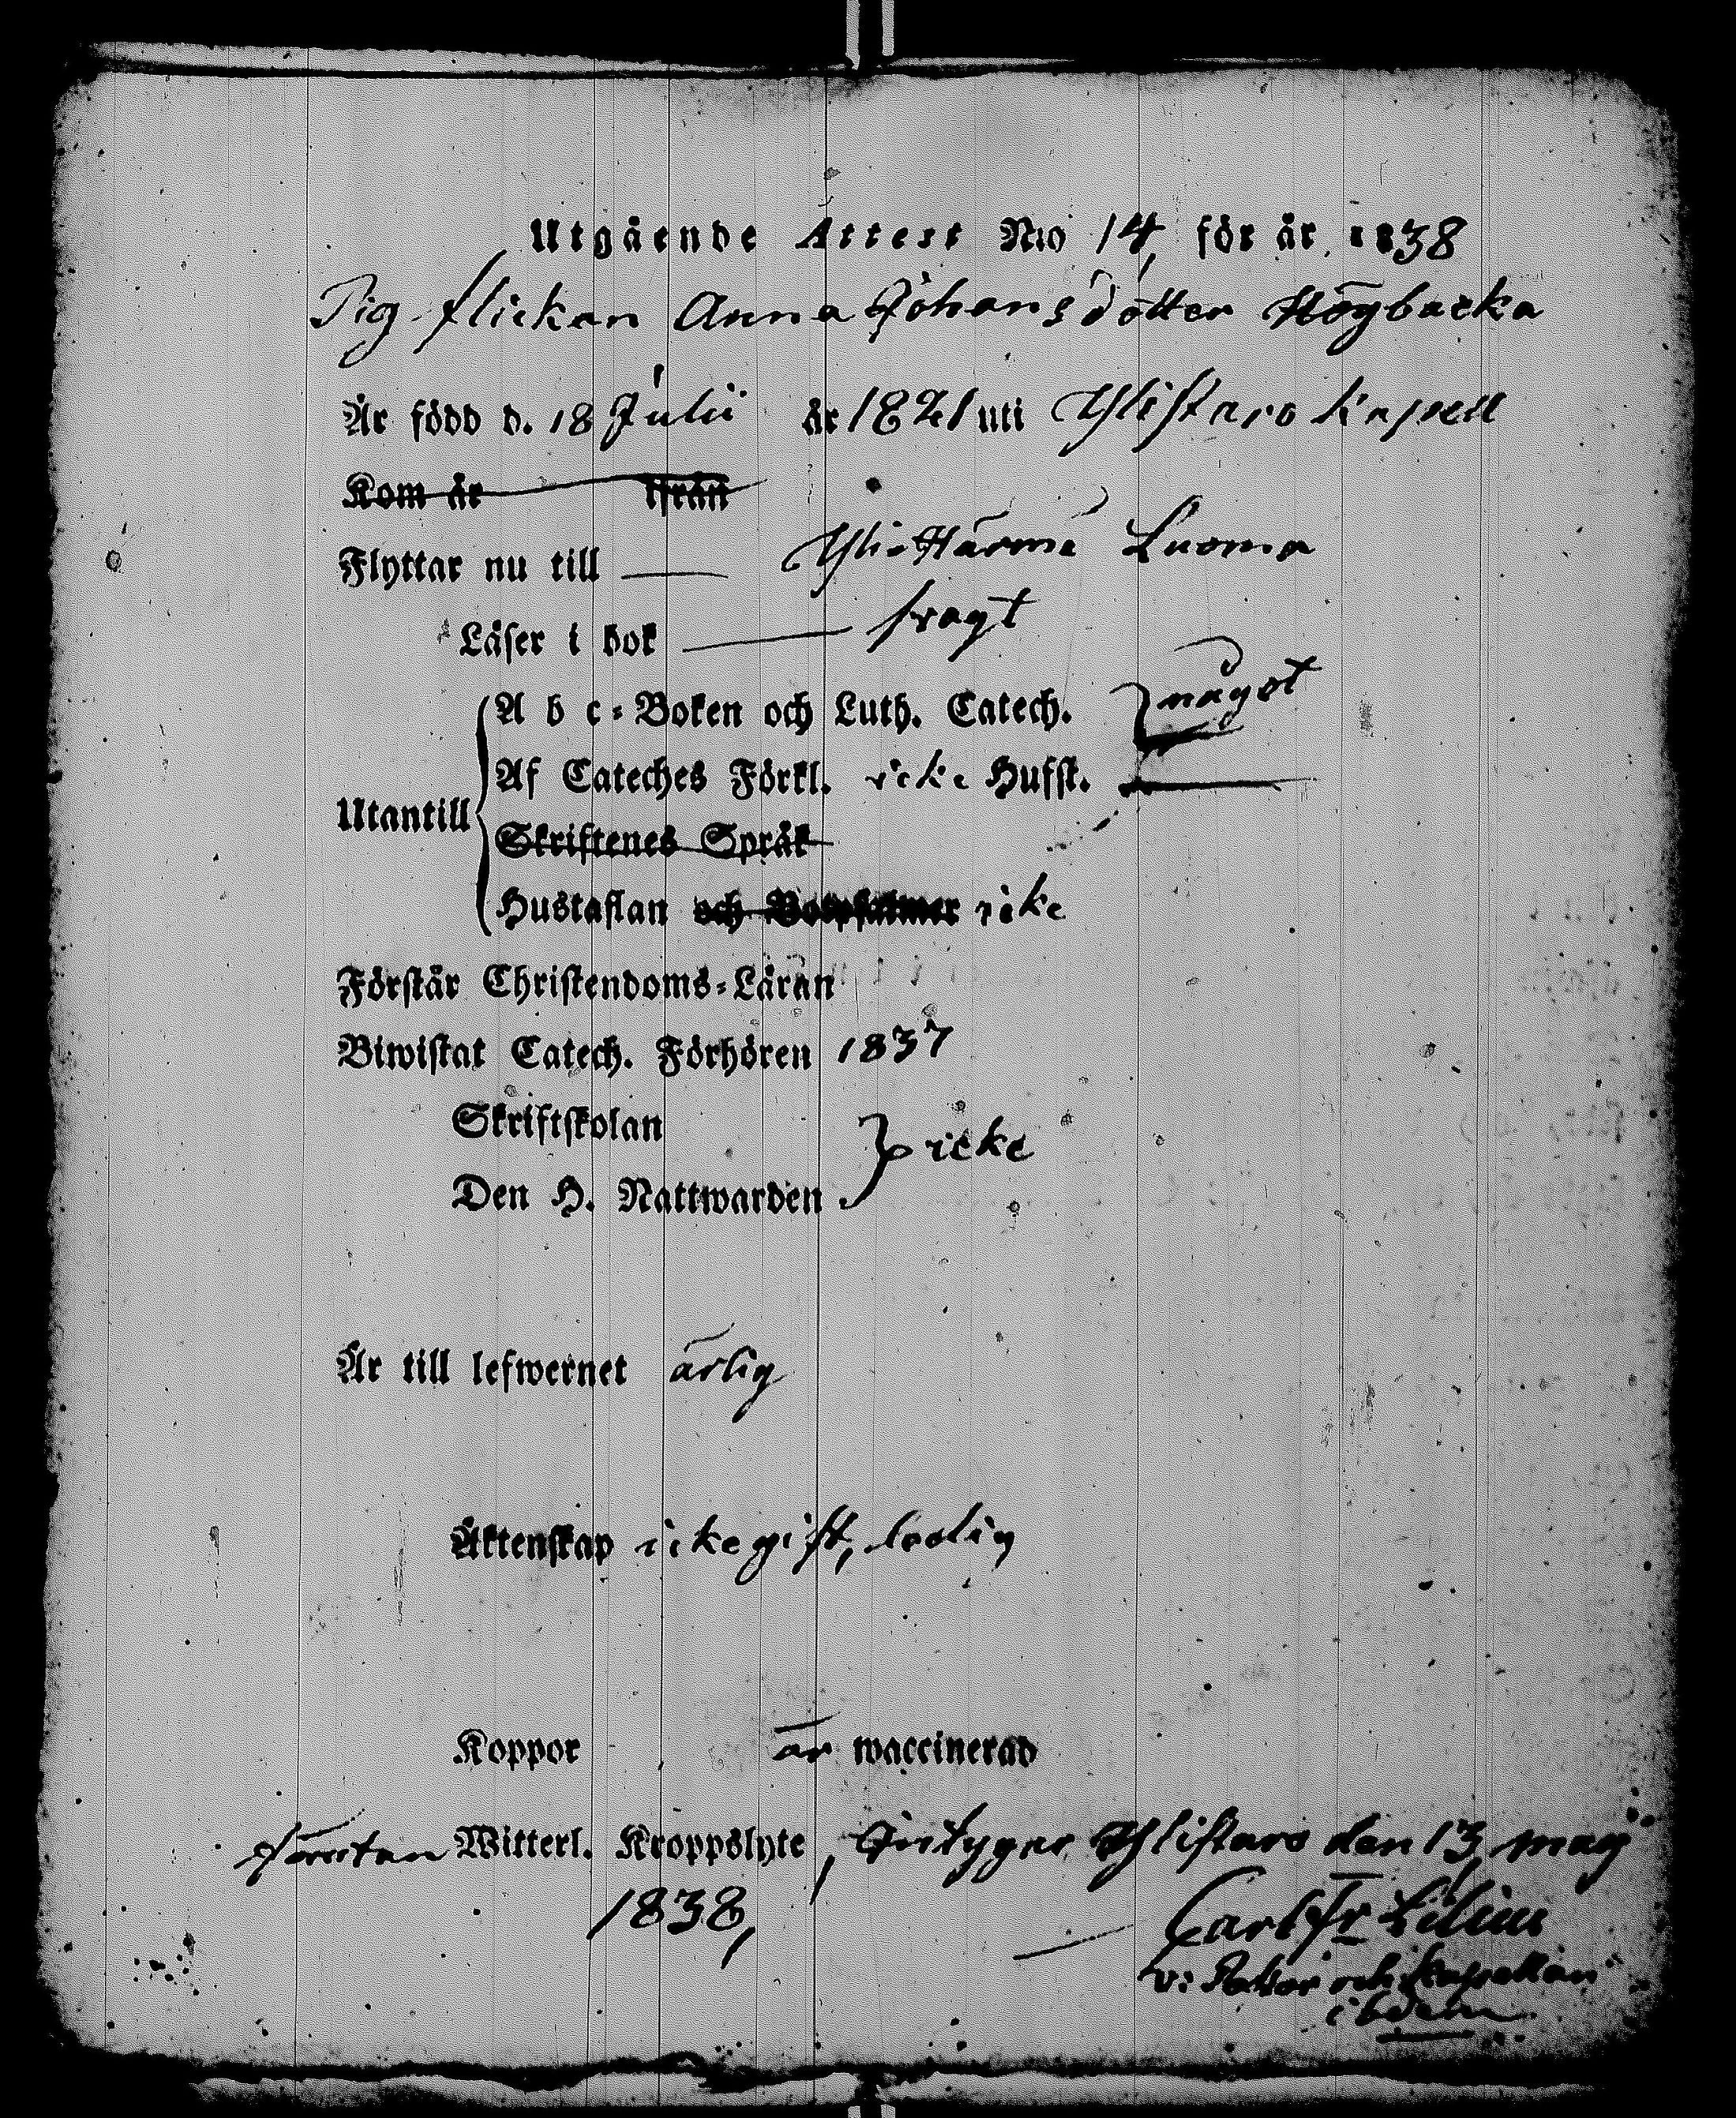 Utgående Attest N:o 14 för år 1838
Pig flickan Anna Johans dotter Högbacka
Är född d. 18 Julii år 1821 uti Ylistaro Kapell
Kom år ifrån
Flyttar nu till Yli Härmä Luoma
Läser i bok svagt
A b c-Boken och Luth. Catech. } något
Af Cateches Förkl. icke Husst.
Utantill
Skriftenes Språk
Hustaflan och icke
Förstår Christendoms-Läran
Biwistat Catech. Förhören 1837
Skriftskolan
} icke
Den H. Nattwarden
Är till lefwernet ärlig
Äktenskap icke gift, ledig
Koppor är waccinerad
förutan Witterl. Kroppslyte, Intygar Ylistaro den 13 maij
1838, Carl Fr Lilius
v: Pastor och Kapellan
ibidem